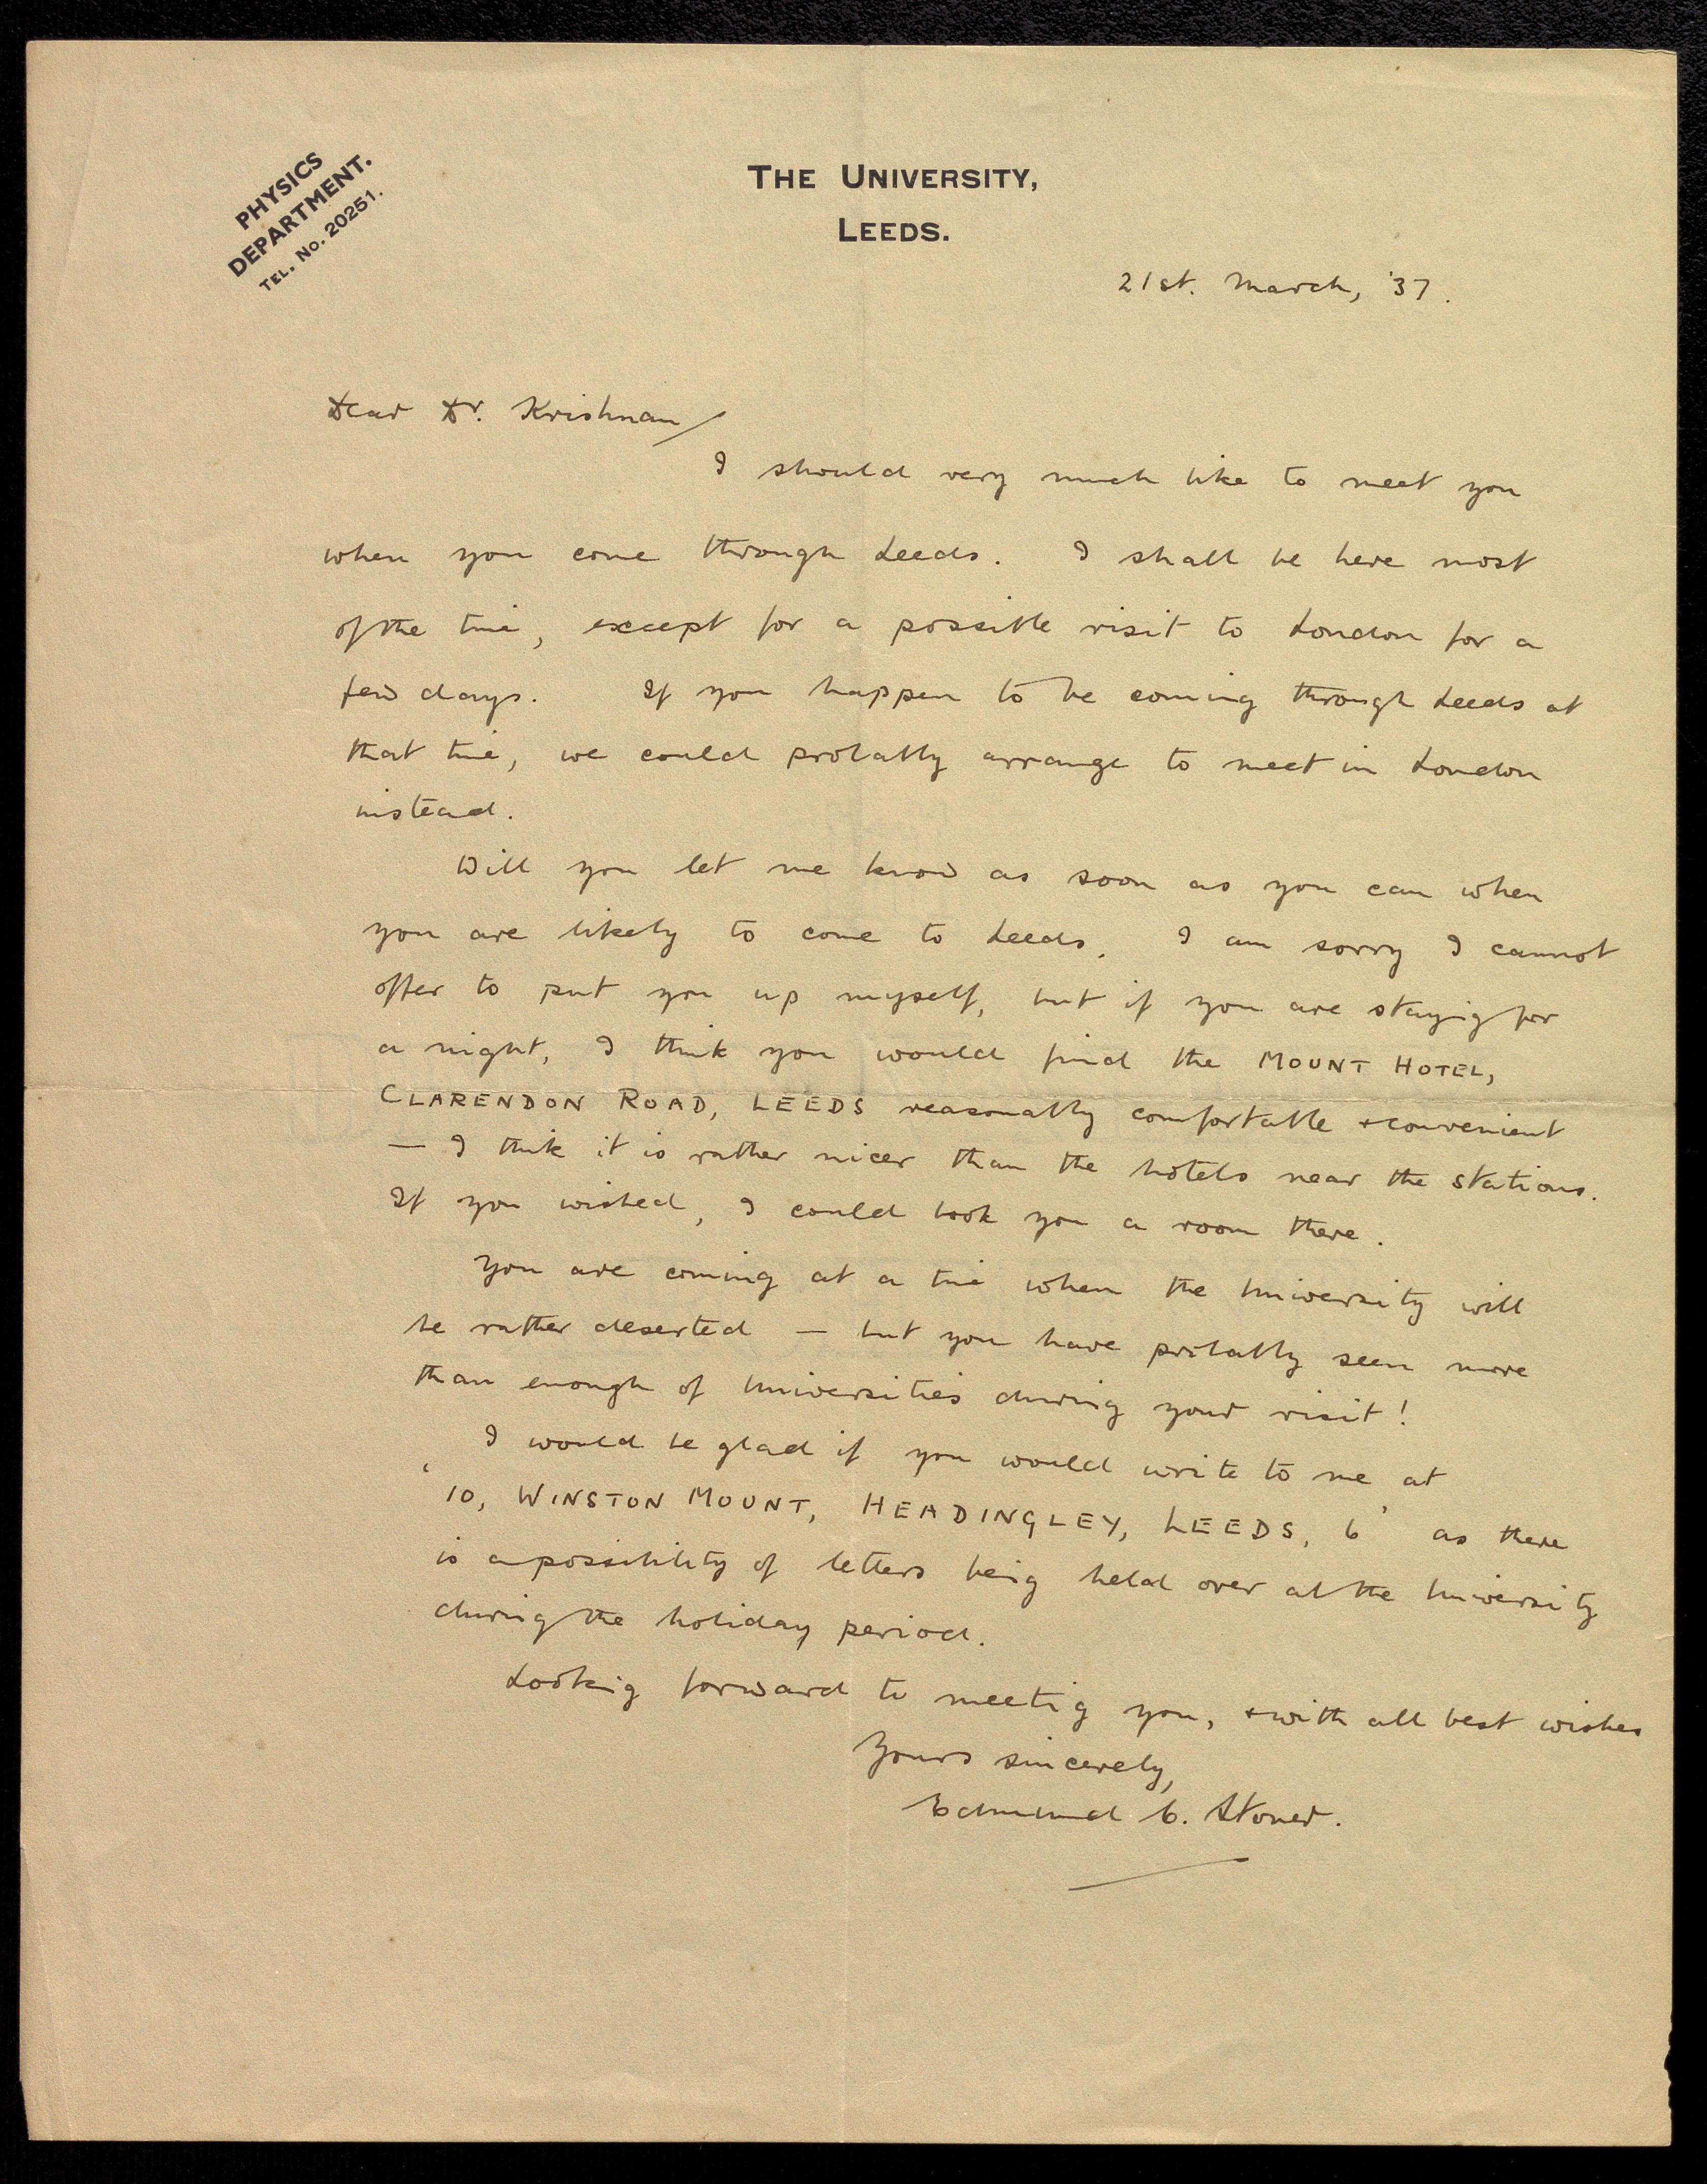 PHYSICS
DEPARTMENT.
TEL. No. 20251.
THE UNIVERSITY,
LEEDS.
21st. March, '37.
Dear Dr. Krishnan
I should very much like to meet you
when you come through Leeds. I shall be here most
of the time, except for a possible visit to London for a
few days. If you happen to be coming through Leeds at
that time, we could probably arrange to meet in London
instead.
Will you let me know as soon as you can when
you are likely to come to Leeds. I am sorry I cannot
offer to put you up myself, but if you are staying for
a night, I think you would find the MOUNT HOTEL,
CLARENDON ROAD, LEEDS reasonably comfortable + convenient
— I think it is rather nicer than the hotels near the stations.
If you wished, I could book you a room there.
You are coming at a time when the University will
be rather deserted — but you have probably seen more
than enough of Universities during your visit!
I would be glad if you would write to me at
'10, WINSTON MOUNT, HEADINGLEY, LEEDS, 6' as there
is a possibility of letters being held over at the University
during the holiday period.
Looking forward to meeting you, + with all best wishes
Yours sincerely,
Edmund C. Stoner.